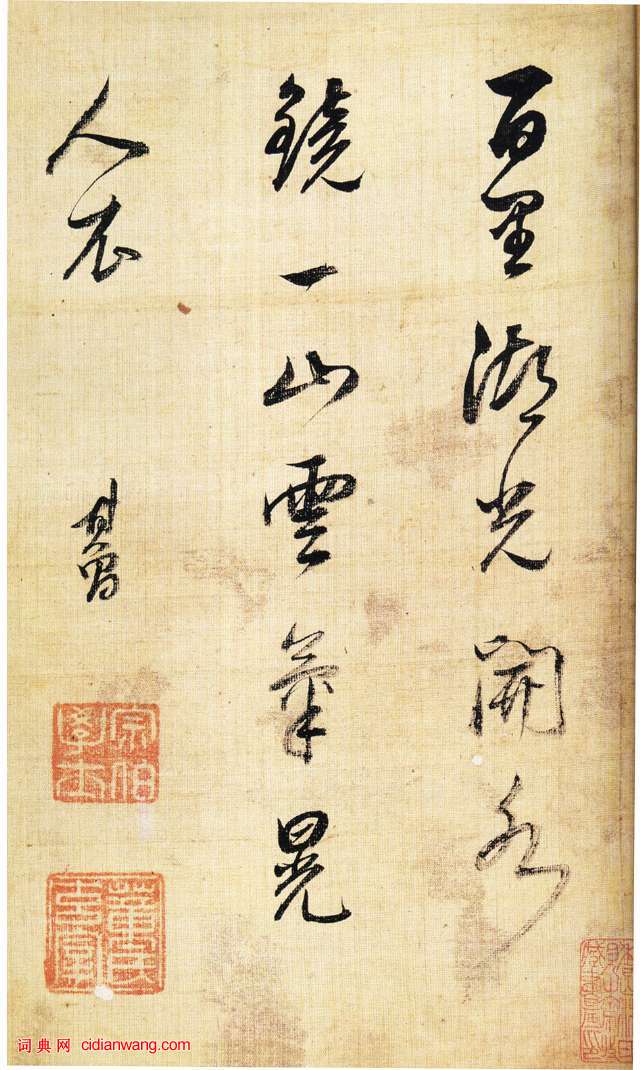 百里湖光開水
鏡一山雲氣晃
人衣
其昌
宗伯學士
董氏玄宰
词典网 cidianwang.com